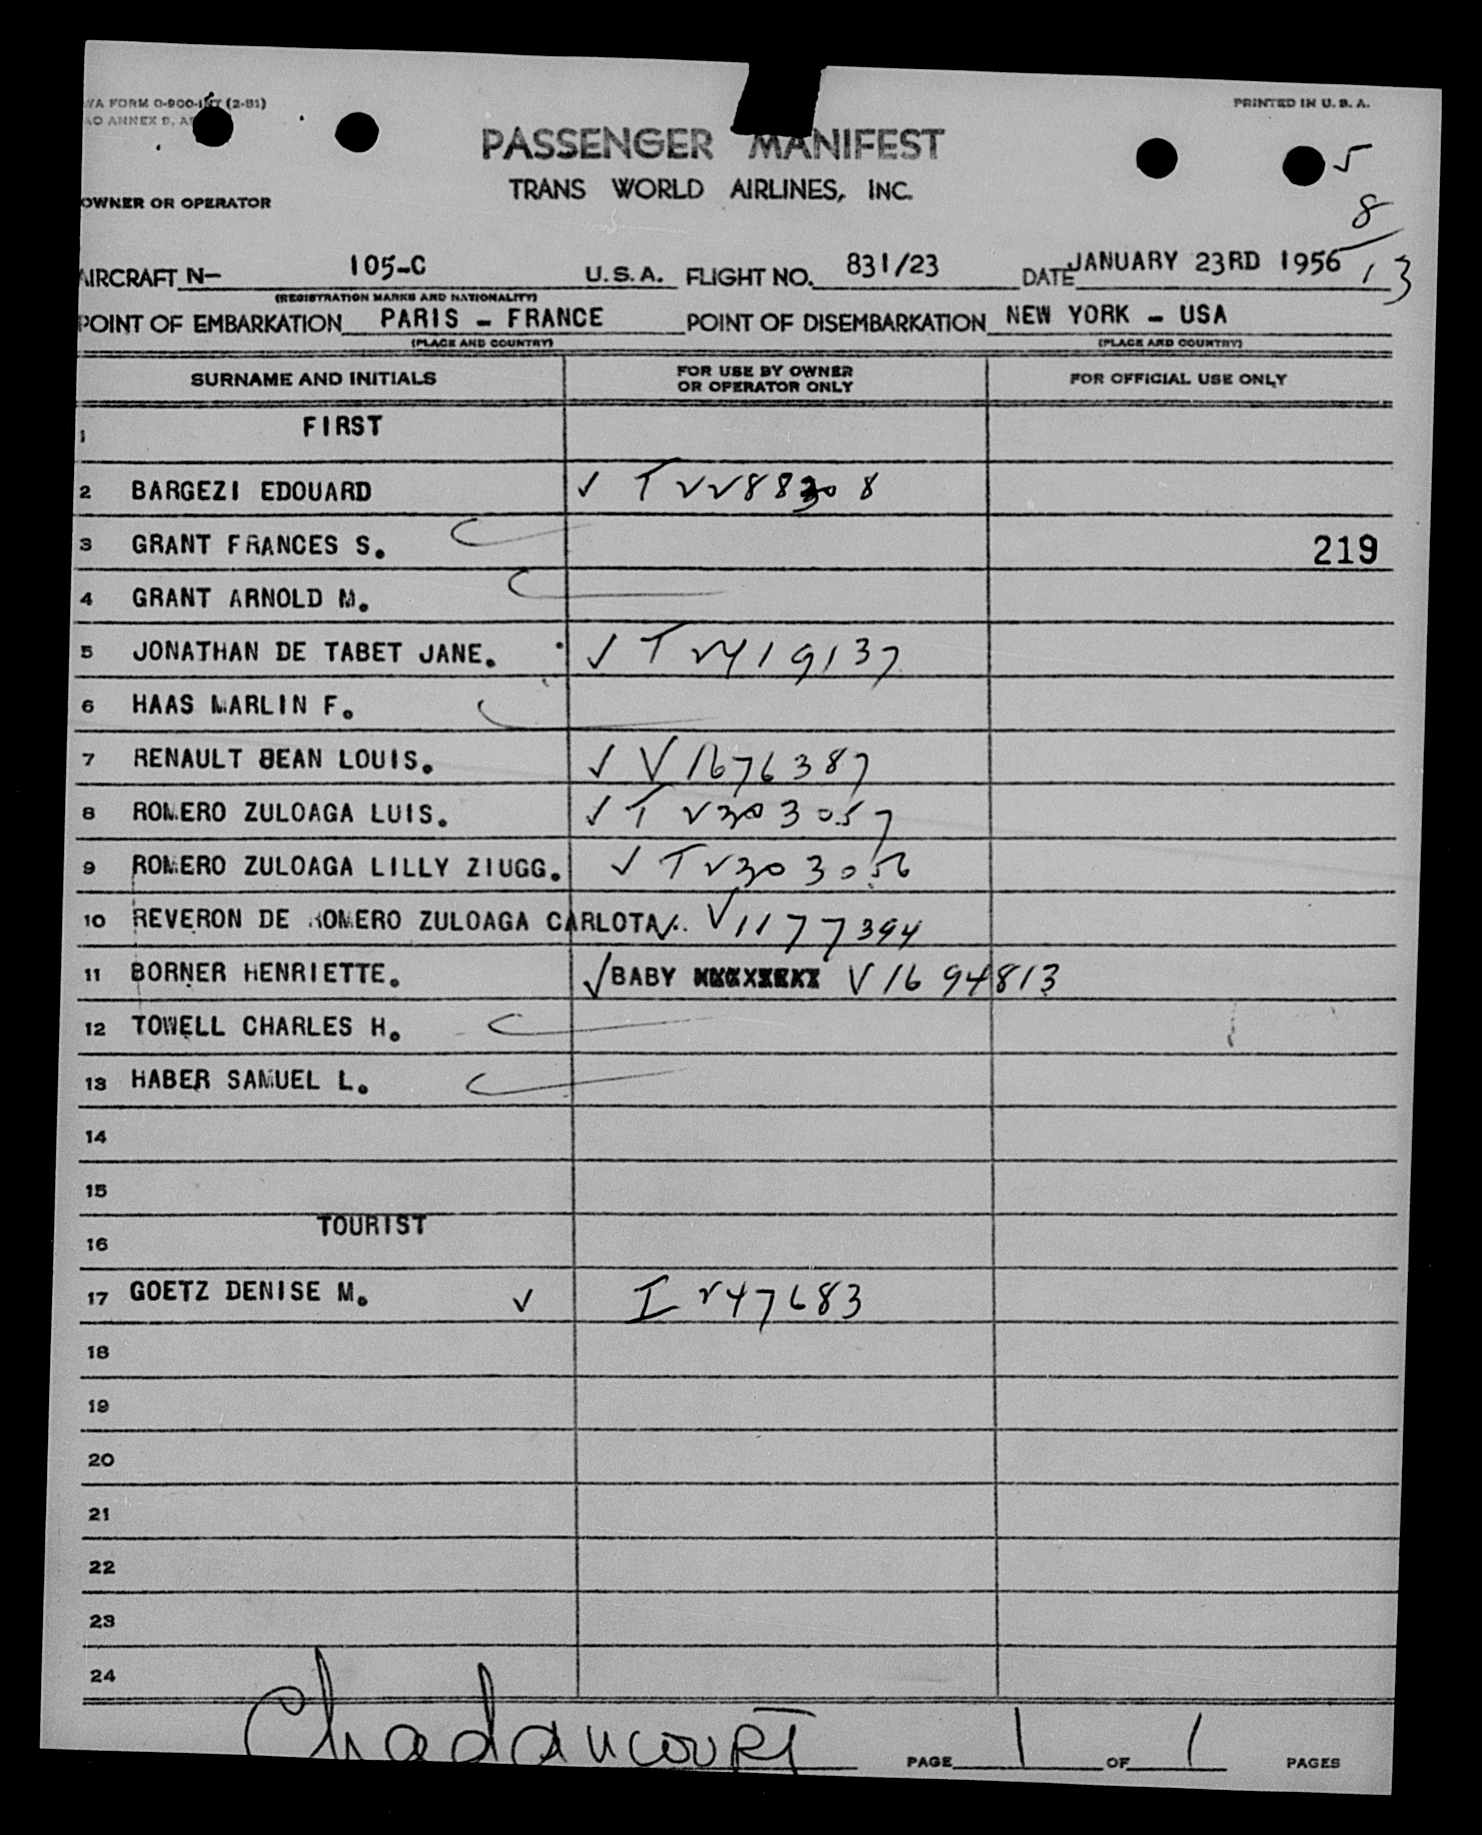 FORM 0-900-INT (2-51)
PRINTED IN U. S. A.
ANNEX 9,
PASSENGER MANIFEST
5
TRANS WORLD AIRLINES, INC.
OWNER OR OPERATOR
8
13
AIRCRAFT N- 105-C U.S.A. FLIGHT NO. 831/23 DATE JANUARY 23RD 1956
(REGISTRATION MARKS AND NATIONALITY)
POINT OF EMBARKATION PARIS - FRANCE POINT OF DISEMBARKATION NEW YORK - USA
(PLACE AND COUNTRY) (PLACE AND COUNTRY)
SURNAME AND INITIALS FOR USE BY OWNER OR OPERATOR ONLY FOR OFFICIAL USE ONLY
1 FIRST
2 BARGEZI EDOUARD ✓ T
3 GRANT FRANCES S. 219
4 GRANT ARNOLD M.
5 JONATHAN DE TABET JANE. ✓ T V419137
6 HAAS MARLIN F.
7 RENAULT BEAN LOUIS. ✓ V1676387
8 ROMERO ZULOAGA LUIS. ✓ T V303057
9 ROMERO ZULOAGA LILLY ZIUGG. ✓ T V303056
10 REVERON DE ROMERO ZULOAGA CARLOTA. ✓ V1177394
11 BORNER HENRIETTE. ✓ BABY V1694813
12 TOWELL CHARLES H.
13 HABER SAMUEL L.
14
15
16 TOURIST
17 GOETZ DENISE M. ✓ I V47683
18
19
20
21
22
23
24
Chadancourt PAGE 1 OF 1 PAGES